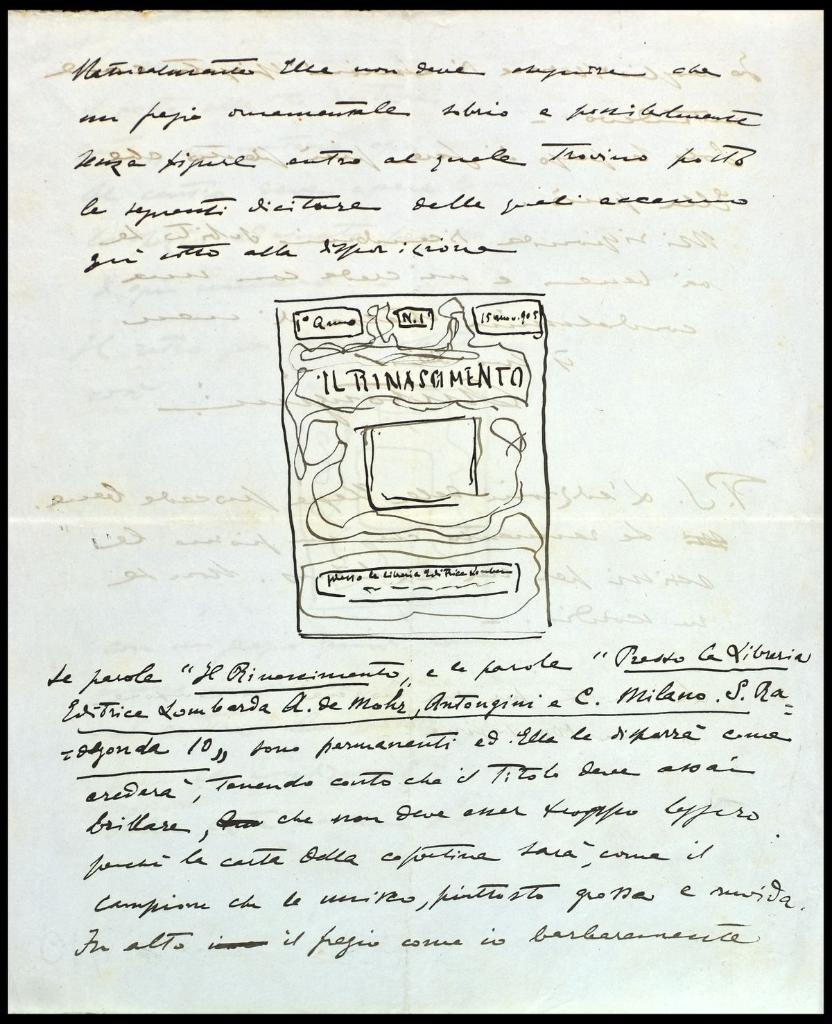 Naturalmente Ella non deve eseguire che
un fregio ornamentale sobrio e possibilmente
senza figure entro al quale trovino posto
le seguenti diciture delle quali accenno
qui sotto alla disposizione
1º Anno N. 1º 15 nov. 905
IL RINASCIMENTO
presso la Libreria Editrice Lombarda
Le parole "Il Rinascimento„ e le parole "Presso la Libreria
Editrice Lombarda A. de Mohr, Antongini e C. Milano. S. Ra=
=degonda 10„ sono permanenti ed Ella le disporrà come
crederà, tenendo conto che il Titolo deve assai
brillare, che non deve esser troppo leggero
perchè la carta della copertina sarà, come il
campione che le unisco, piuttosto grossa e ruvida.
In alto il fregio come io barbaramente